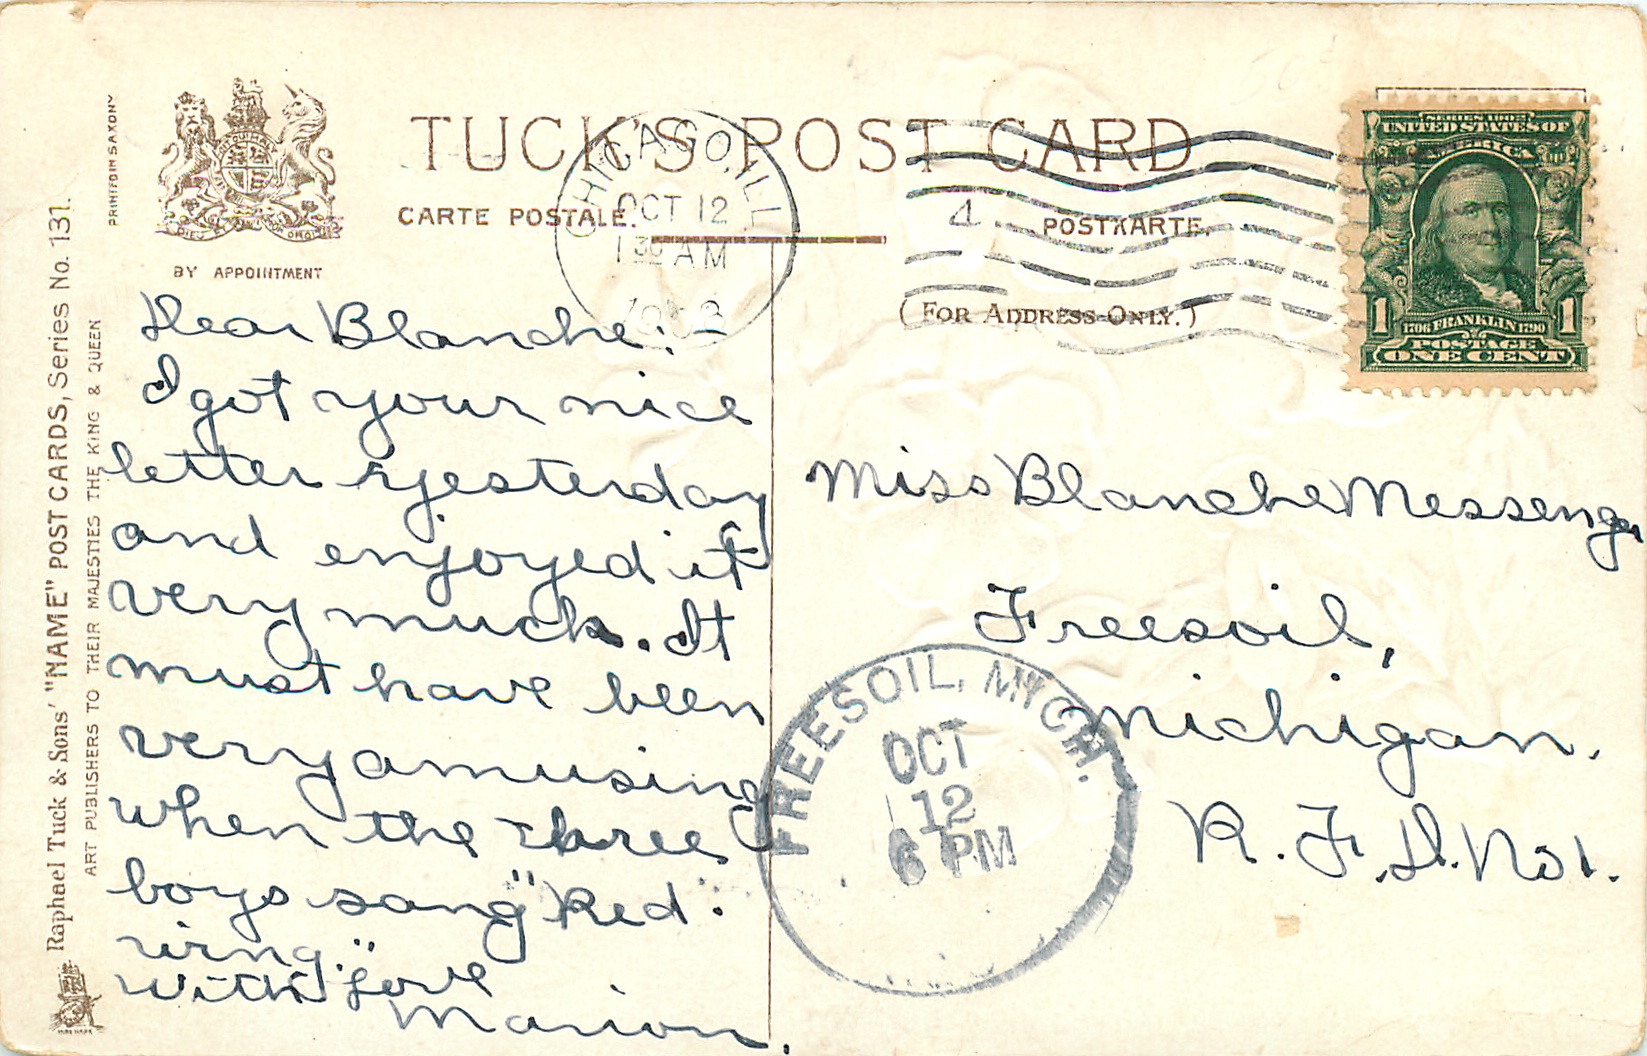 TUCK'S POST CARD
CARTE POSTALE.
POSTKARTE.
(FOR ADDRESS ONLY.)
BY APPOINTMENT
PRINTED IN SAXONY
Raphael Tuck & Sons' "NAME" POST CARDS, Series No. 131.
ART PUBLISHERS TO THEIR MAJESTIES THE KING & QUEEN
CHICAGO, ILL.
OCT 12
1 30 AM
4
SERIES 1902
UNITED STATES OF
AMERICA
1 1
1706 FRANKLIN 1790
POSTAGE
ONE CENT
Dear Blanche:
I got your nice
letter yesterday
and enjoyed it
very much. It
must have been
very amusing
when the three
boys sang "Red
wing."
With love
Marion.
Miss Blanche Messenger
Freesoil,
Michigan.
R. F. D. No 1.
FREESOIL, MICH.
OCT
12
6 PM